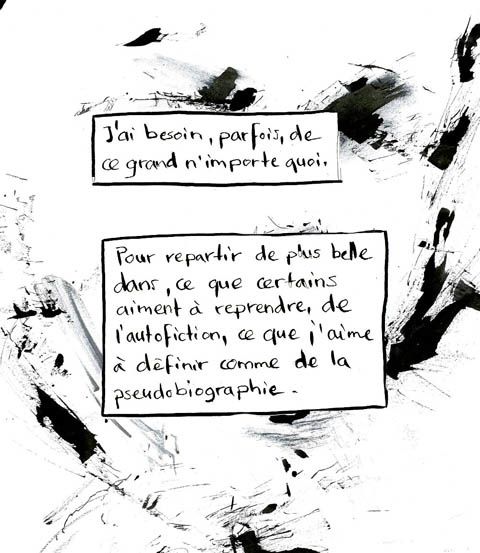 J'ai besoin, parfois, de
ce grand n'importe quoi.
Pour repartir de plus belle
dans, ce que certains
aiment à reprendre, de
l'autofiction, ce que j'aime
à définir comme de la
pseudobiographie.